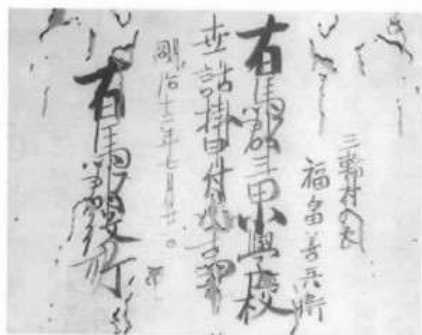 三輪村
福畠善兵衛
有馬郡三田小學校
世話掛申付候事
明治十二年七月廿日
有馬郡役所